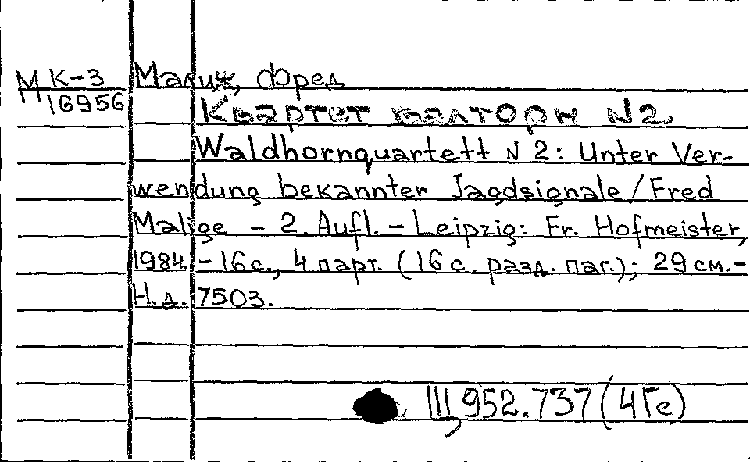 М К-3 Малиж, Фред
16956 Квартет валторн N2
Waldhornquartett N 2: Unter Ver-
wendung bekannter Jagdsignale / Fred
Malige - 2. Aufl. - Leipzig: Fr. Hofmeister,
1984 - 16 с., 4 парт. (16 с. разд. паг.); 29 см. -
Н.д. 7503.
III, 952.737 (4Ге)